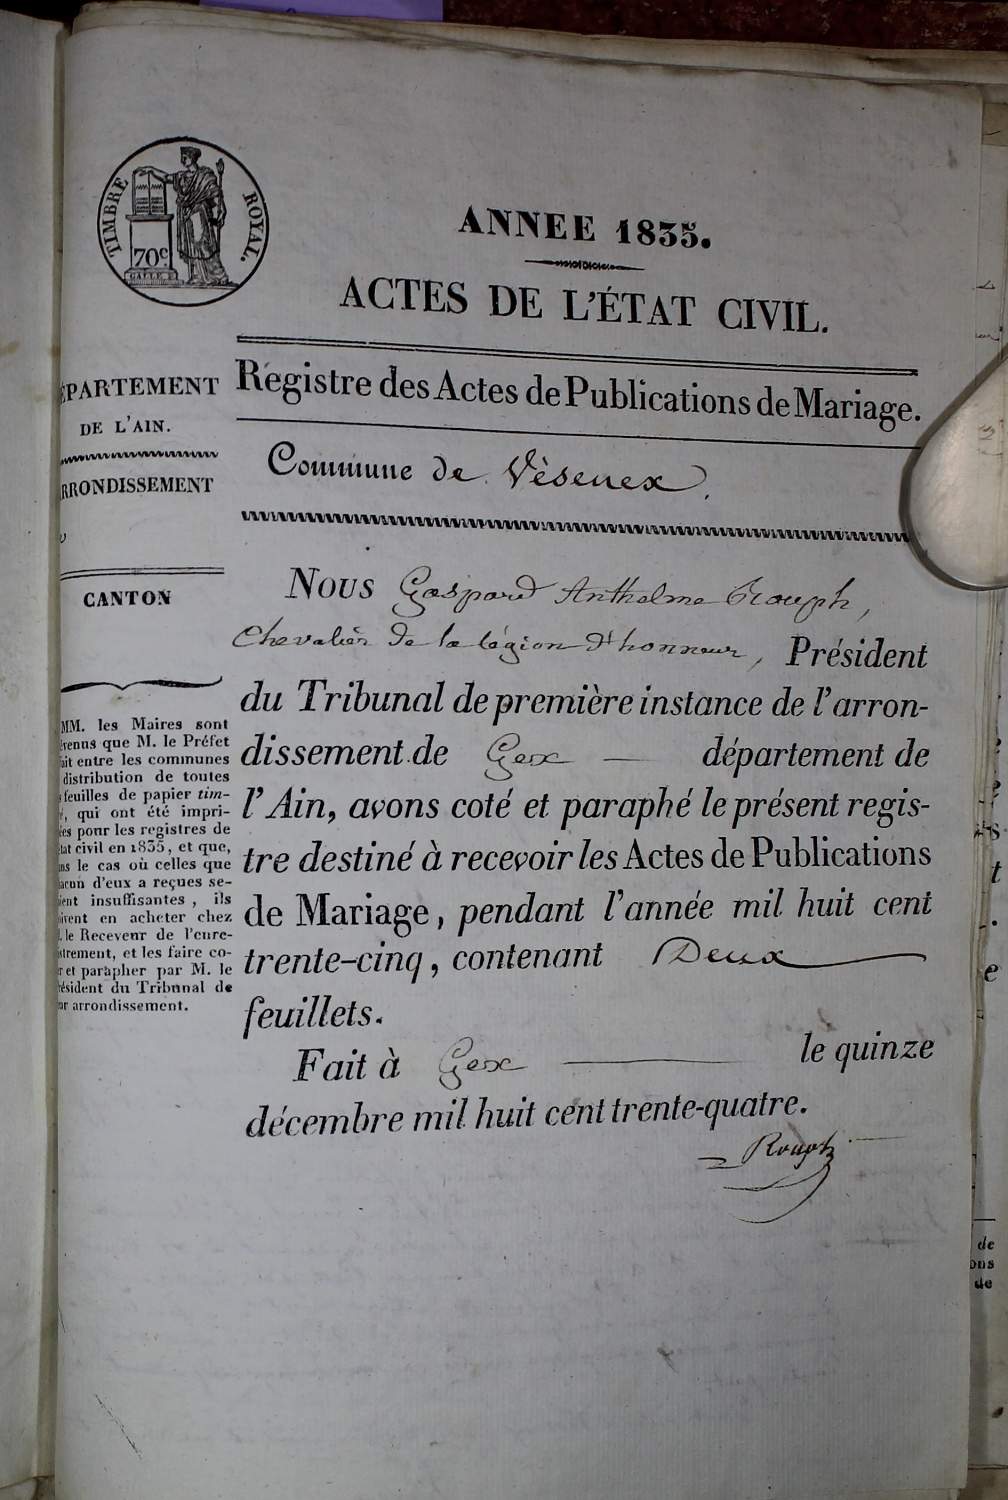 TIMBRE ROYAL.
70c.
ANNEE 1835.
ACTES DE L'ÉTAT CIVIL.
Registre des Actes de Publications de Mariage.
Commune de Vèsenex.
ÉPARTEMENT
DE L'AIN.
RRONDISSEMENT
CANTON
MM. les Maires sont
venus que M. le Préfet
ait entre les communes
distribution de toutes
feuilles de papier tim-
, qui ont été impri-
es pour les registres de
tat civil en 1835, et que,
ns le cas où celles que
acun d'eux a reçues se-
ient insuffisantes, ils
ivent en acheter chez
. le Receveur de l'enre-
strement, et les faire co-
r et parapher par M. le
résident du Tribunal de
ur arrondissement.
Nous Gaspard Anthelme Rouph,
Chevalier de la légion d'honneur, Président
du Tribunal de première instance de l'arron-
dissement de Gex — département de
l'Ain, avons coté et paraphé le présent regis-
tre destiné à recevoir les Actes de Publications
de Mariage, pendant l'année mil huit cent
trente-cinq, contenant Deux
feuillets.
Fait à Gex — le quinze
décembre mil huit cent trente-quatre.
Rouph
de
ons
de